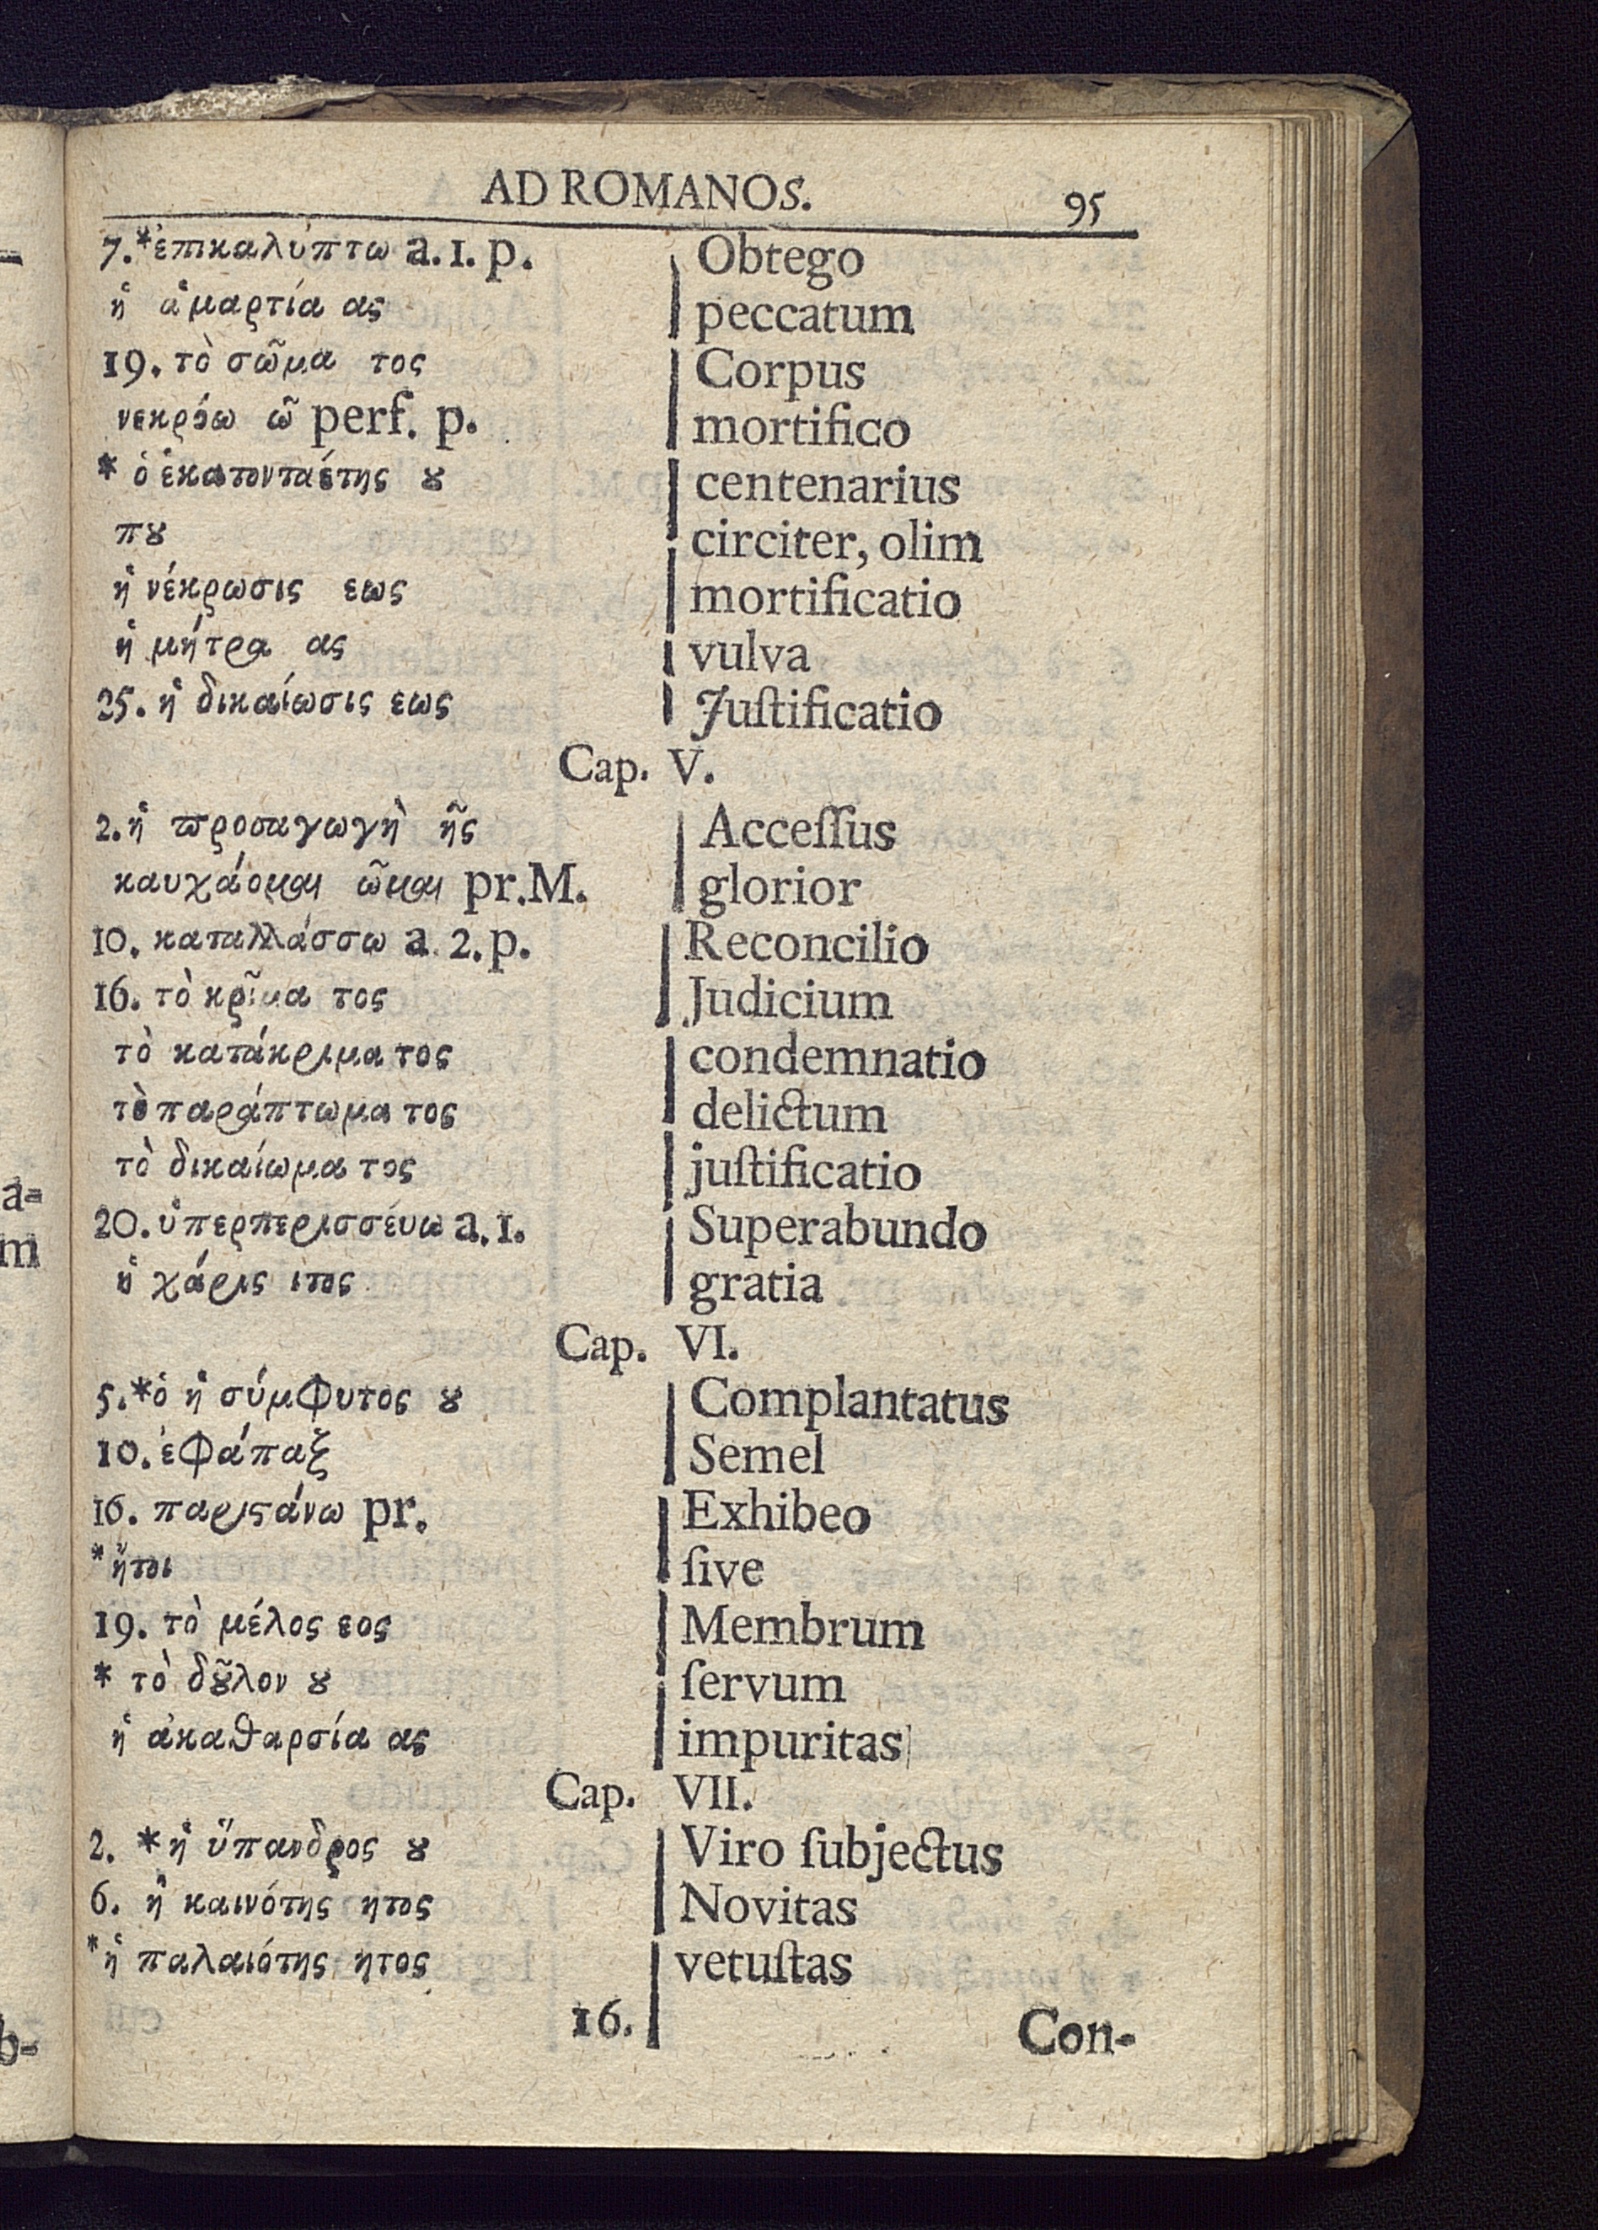 AD ROMANOS. 95
7.*ἐπικαλύπτω a.1. p. Obtego
ἡ ἁμαρτία ας peccatum
19. τὸ σῶμα τος Corpus
νεκρόω ῶ perf. p. mortifico
* ὁ ἑκατονταέτης ȣ centenarius
πȣ circiter, olim
ἡ νέκρωσις εως mortificatio
ἡ μήτρα ας vulva
25. ἡ δικαίωσις εως Juſtificatio
Cap. V.
2. ἡ ϖροσαγωγὴ ῆς Acceſſus
καυχάομαι ῶμαι pr.M. glorior
10. καταλλάσσω a. 2. p. Reconcilio
16. τὸ κρῖμα τος Judicium
τὸ κατάκριμα τος condemnatio
τὸ παράπτωμα τος delictum
τὸ δικαίωμα τος juſtificatio
20. ὑπερπερισσέυω a.1. Superabundo
ἡ χάρις ιτος gratia
Cap. VI.
5.*ὁ ἡ σύμφυτος ȣ Complantatus
10. ἐφάπαξ Semel
16. παριϛάνω pr. Exhibeo
*ἤτοι ſive
19. τὸ μέλος εος Membrum
* τὸ δȣ͂λον ȣ ſervum
ἡ ἀκαθαρσία ας impuritas
Cap. VII.
2. *ἡ ὕπανδρος ȣ Viro ſubjectus
6. ἡ καινότης ητος Novitas
*ἡ παλαιότης ητος vetuſtas
16. Con-
a-
m
b-